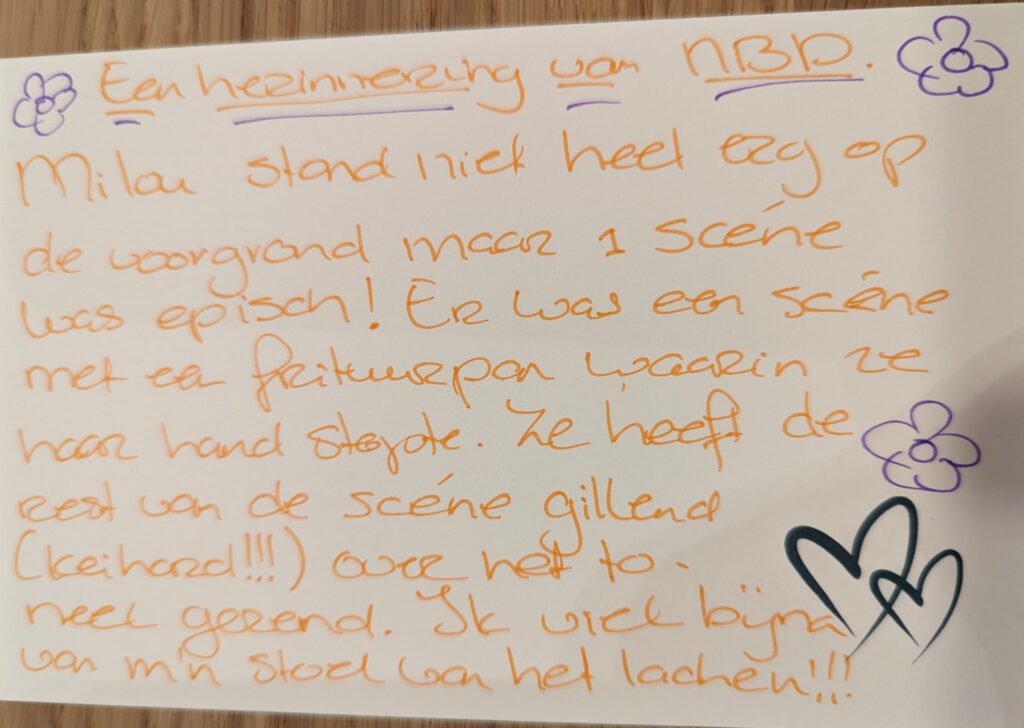 Een herinnering van NBD.
Milou stond niet heel erg op
de voorgrond maar 1 scéne
was episch! Er was een scéne
met een frituurpan waarin ze
haar hand stopte. Ze heeft de
rest van de scéne gillend
(keihard!!!) over het to-
neel gerend. Ik viel bijna
van m'n stoel van het lachen!!!